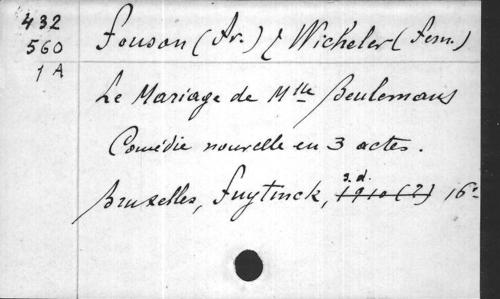 432
560
1 A
Fonson (Fr.) & Wicheler (Fern.)
Le Mariage de Mlle Beulemans
Comédie nouvelle en 3 actes.
s.d.
Bruxelles, Fuytinck, 1910 (?) 16°